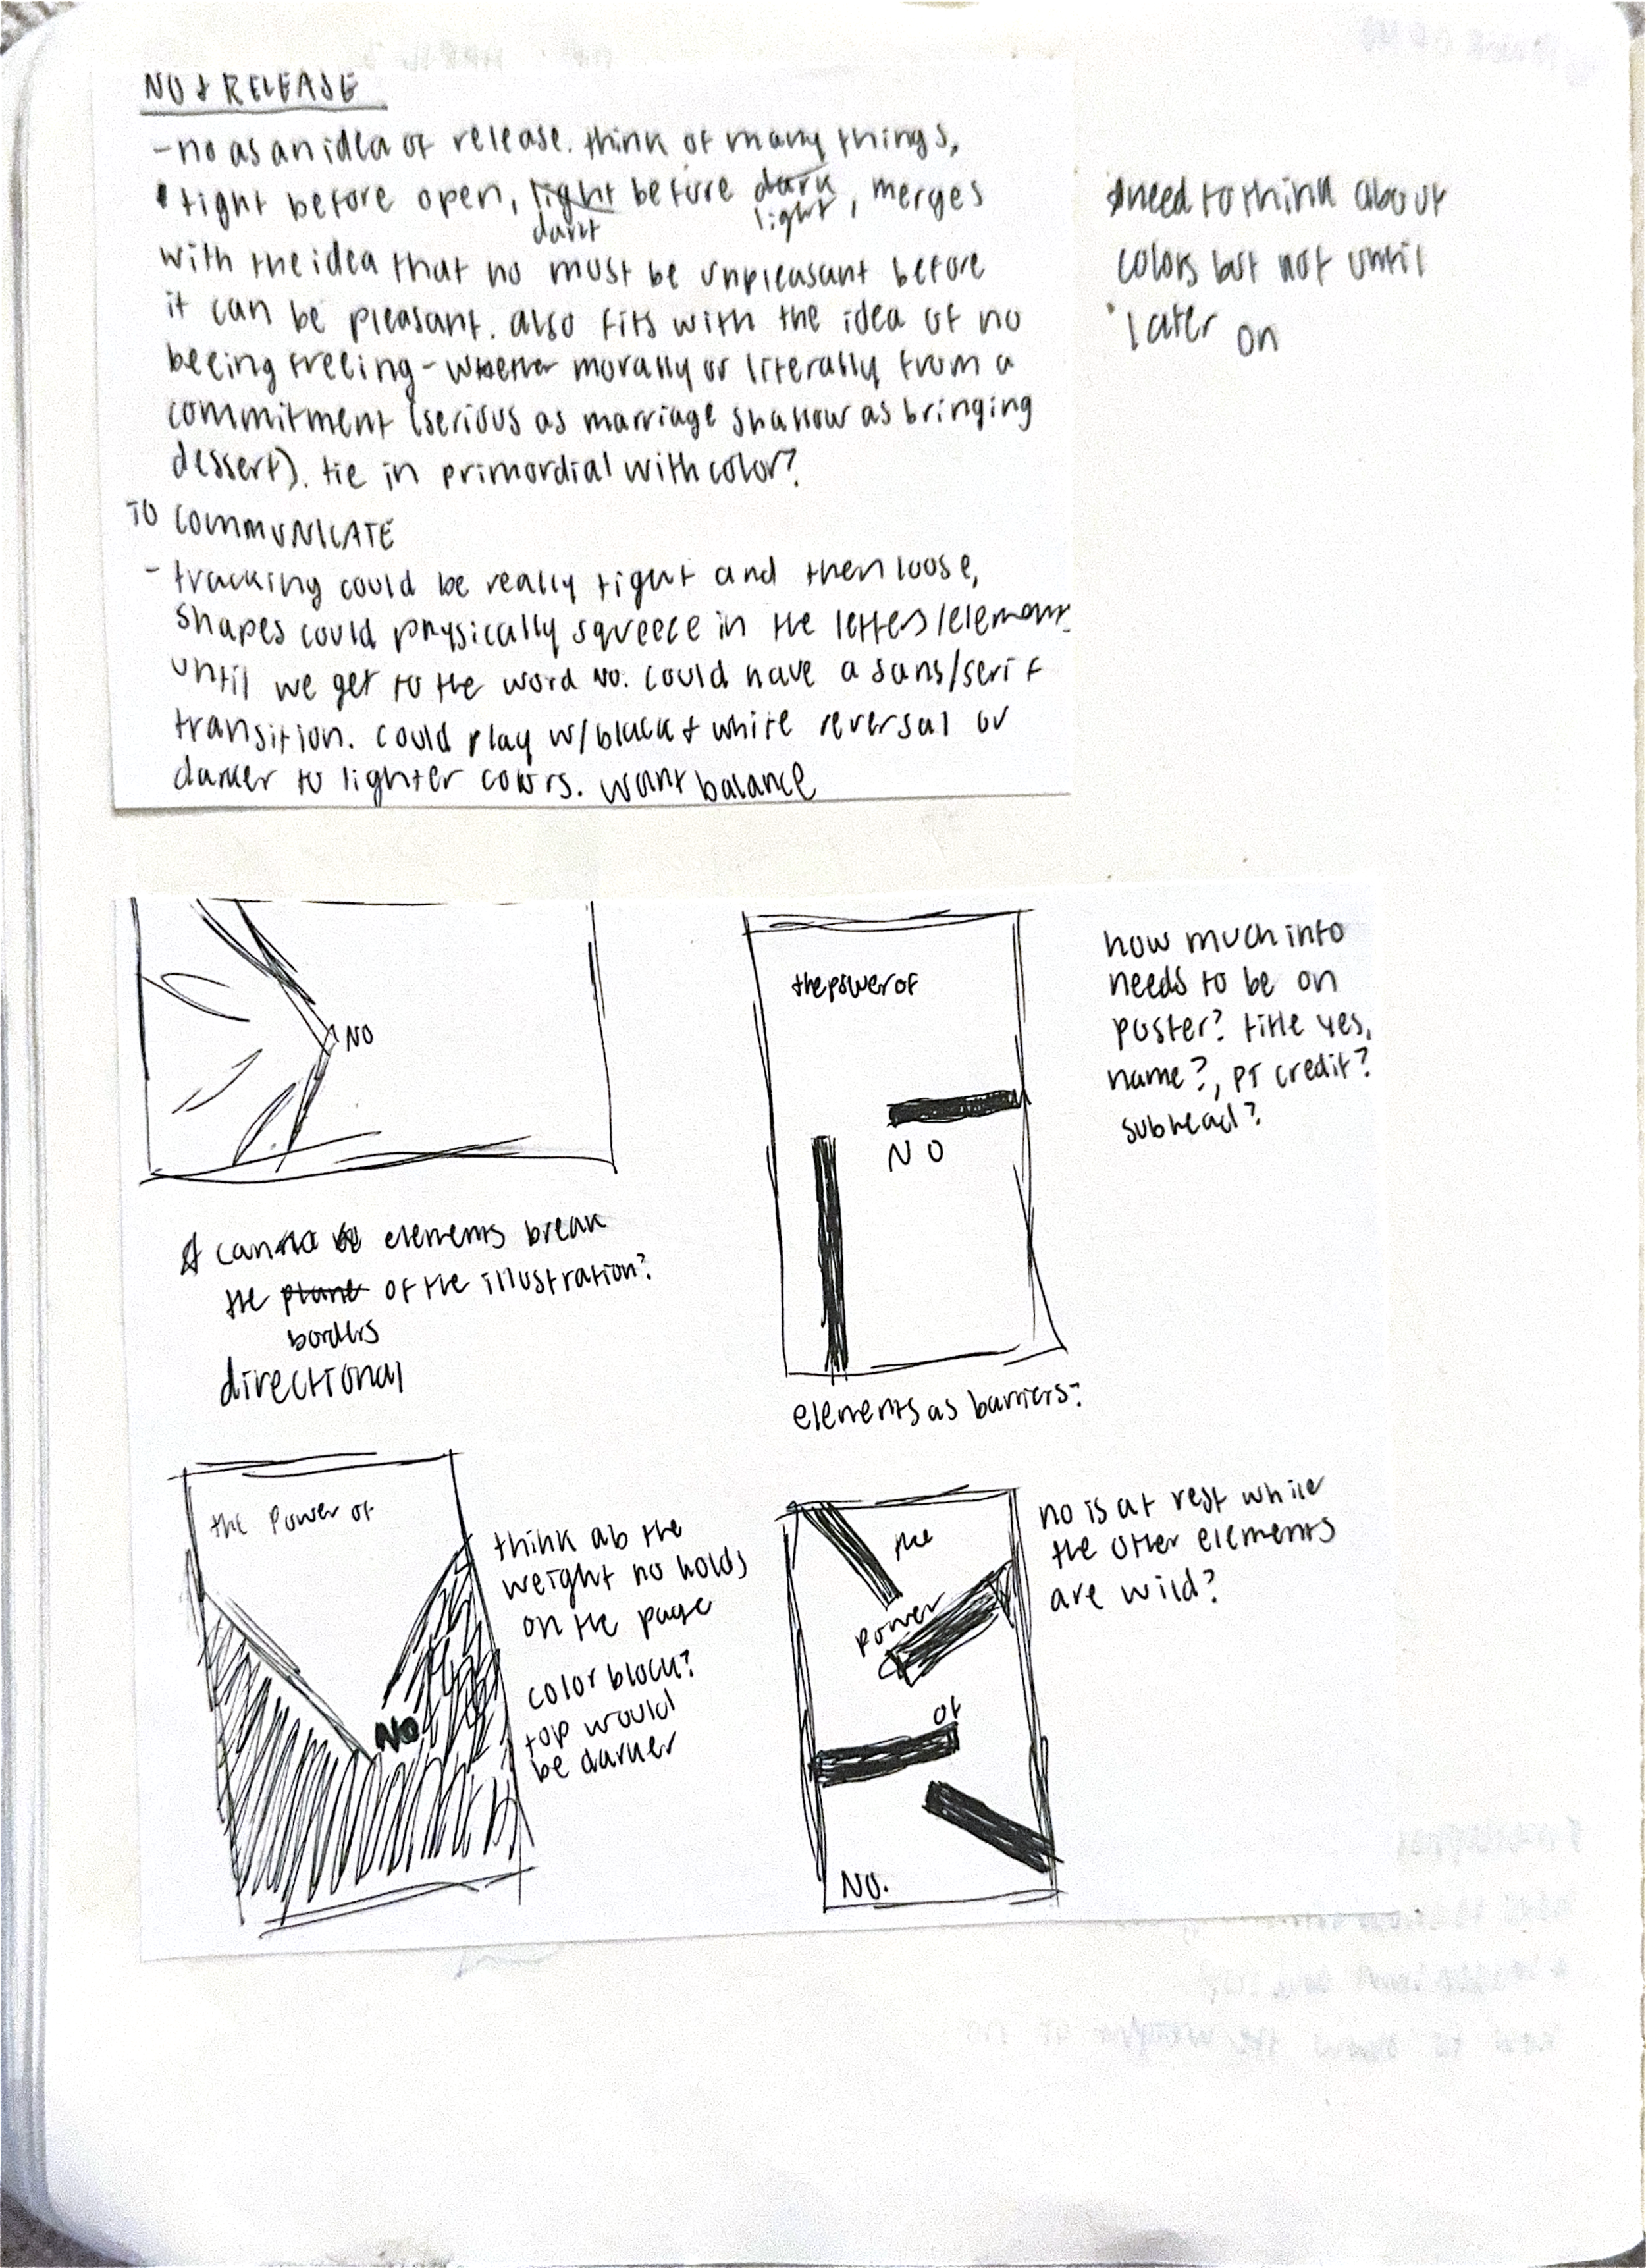 NO & RELEASE
- no as an idea of release. think of many things,
tight before open, light before dark, merges
dark light
with the idea that no must be unpleasant before
it can be pleasant. also fits with the idea of no
beeing freeing - whether morally or literally from a
commitment (serious as marriage shallow as bringing
dessert). tie in primordial with color?
TO COMMUNICATE
- tracking could be really tight and then loose,
shapes could physically squeeze in the letters/elements
until we get to the word no. could have a sans/serif
transition. could play w/ black & white reversal or
darker to lighter colors. want balance
*need to think about
colors but not until
later on
NO
* can elements break
the plane of the illustration?
borders
directional
the power of
NO
elements as barriers?
how much info
needs to be on
poster? title yes,
name?, PT credit?
subhead?
the Power of
NO
think ab the
weight no holds
on the page
color block?
top would
be darker
the
power
of
NO.
no is at rest while
the other elements
are wild?